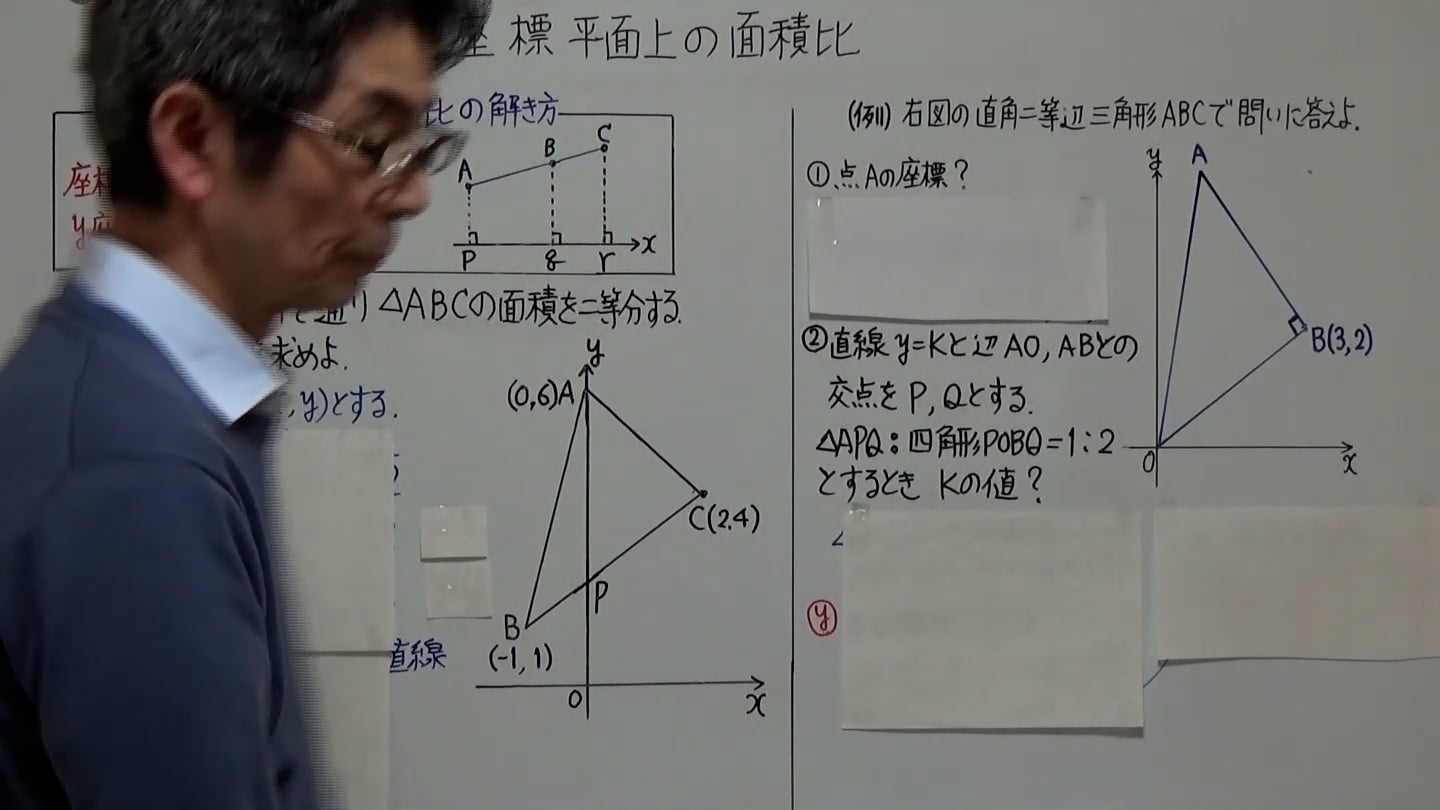 標平面上の面積比
比の解き方
座標
y座
A B C
P q r x
通り △ABCの面積を二等分する.
求めよ.
,y)とする.
y
(0,6)A
C(2,4)
P
B
(-1,1)
O
x
直線
(例1) 右図の直角二等辺三角形ABCで問いに答えよ.
①点Aの座標?
②直線 y=Kと辺AO, ABとの
交点をP, Qとする.
△APQ:四角形POBQ=1:2
とするとき Kの値?
y
A
B(3,2)
O
x
y